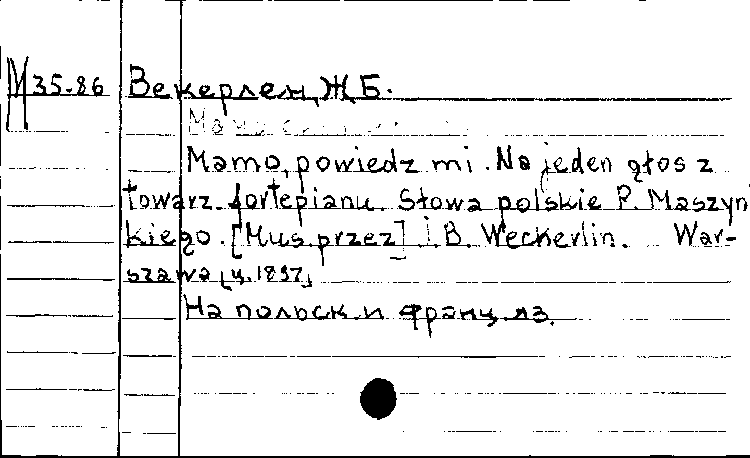 М 35-86 Векерлен, Ж.Б.
Mamo, powiedz mi. Na jeden głos z
towarz. fortepianu. Słowa polskie P. Maszyń
kiego. [Mus. przez] I. B. Weckerlin. War-
szawa [ц. 1897]
На польск. и франц. яз.